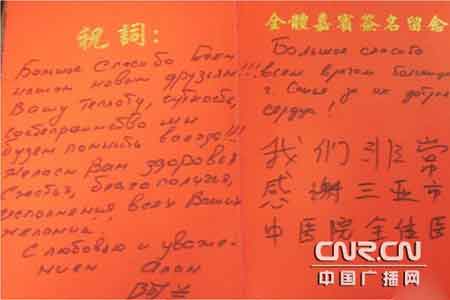 祝詞：
Большое спасибо Вам
нашим новым друзьям!!!
Вашу теплоту,
гостеприимство мы
будем помнить всегда!!!
Желаем Вам здоровья
счастья, благополучия,
исполнения всех Ваших
желаний.
С любовью и уваже-
нием Алан
全體嘉賓簽名留念
Большое спасибо
всем врачам больницы
г. Санья за их добрые
сердца!
我们非常
感谢三亚市
中医院全体医
CNR.CN
中国广播网